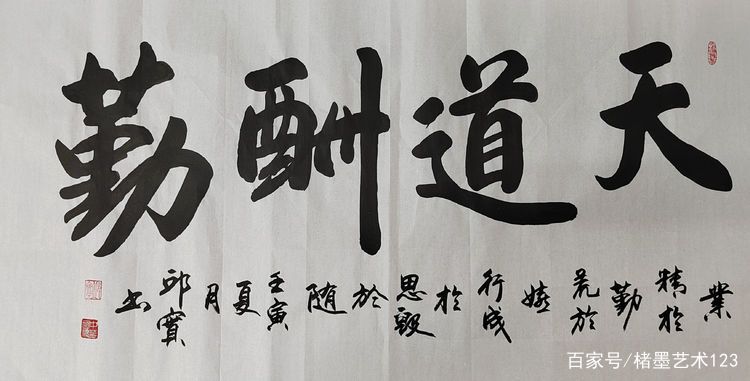 天道酬勤
業精於勤荒於嬉行成於思毀於随壬寅夏月邱寶书
百家号/楮墨艺术123